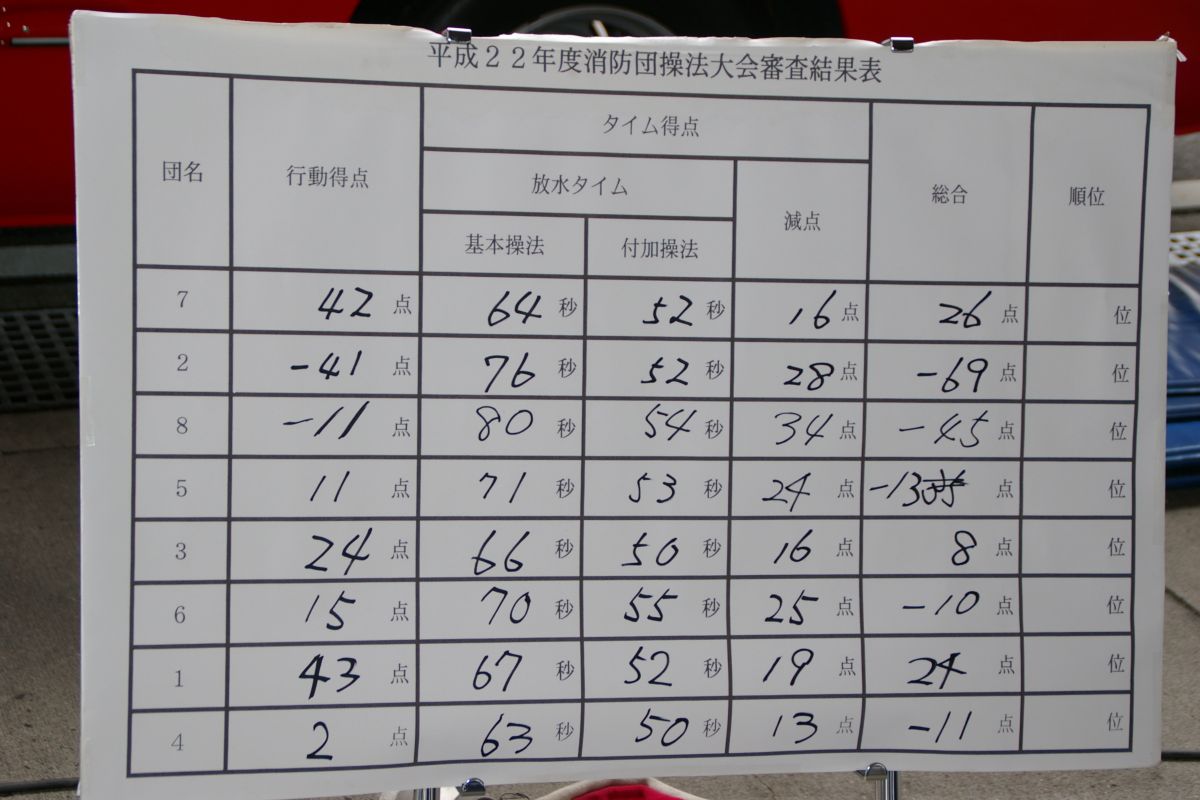 平成２２年度消防団操法大会審査結果表
団名 行動得点 タイム得点 総合 順位
放水タイム 減点
基本操法 付加操法
7 42点 64秒 52秒 16点 26点 位
2 -41点 76秒 52秒 28点 -69点 位
8 -11点 80秒 54秒 34点 -45点 位
5 11点 71秒 53秒 24点 -13点 位
3 24点 66秒 50秒 16点 8点 位
6 15点 70秒 55秒 25点 -10点 位
1 43点 67秒 52秒 19点 24点 位
4 2点 63秒 50秒 13点 -11点 位